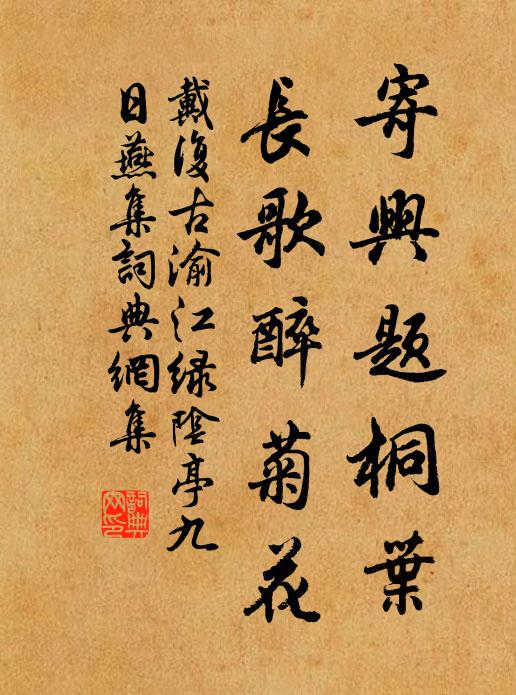 寄興題桐葉
長歌醉菊花
戴復古渝江綠陰亭九
日燕集詞典網集
詞典網印